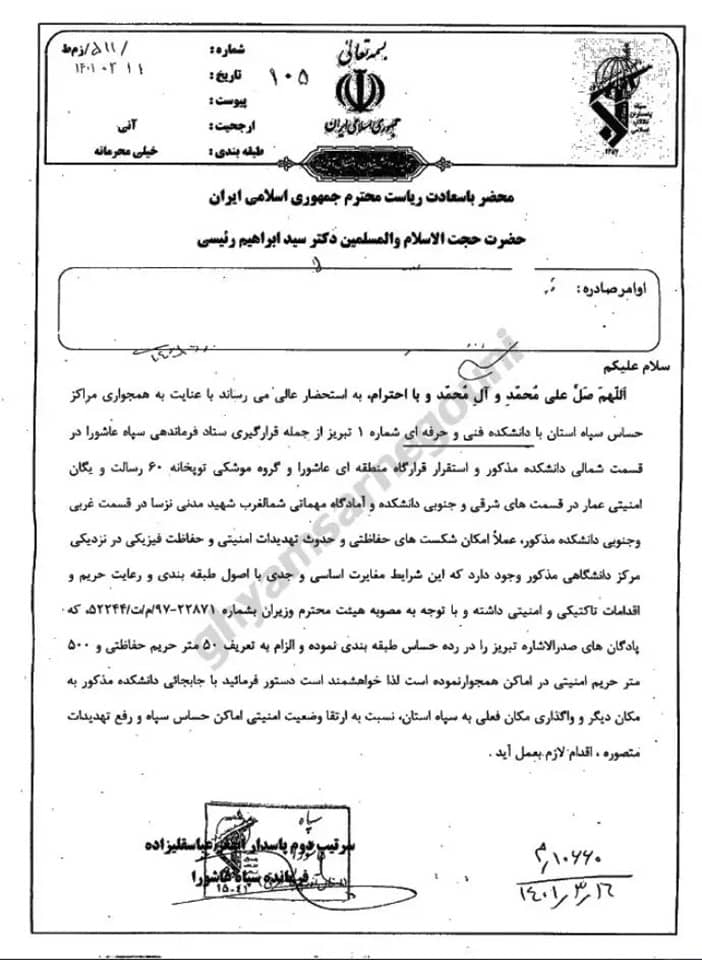 بسمه تعالی
جمهوری اسلامی ایران
شماره : /۵۱۱/زم‌ط
تاریخ : ۱۴۰۱ ۰۳ ۱۱
پیوست :
ارجحیت : آنی
طبقه بندی : خیلی محرمانه
۱۰۵
محضر باسعادت ریاست محترم جمهوری اسلامی ایران
حضرت حجت الاسلام والمسلمین دکتر سید ابراهیم رئیسی
اوامر صادره :
سلام علیکم
اَللهمّ صَلِّ علی مُحمّدِ و آلِ مُحمّد و با احترام، به استحضار عالی می رساند با عنایت به همجواری مراکز
حساس سپاه استان با دانشکده فنی و حرفه ای شماره ۱ تبریز از جمله قرارگیری ستاد فرماندهی سپاه عاشورا در
قسمت شمالی دانشکده مذکور و استقرار قرارگاه منطقه ای عاشورا و گروه موشکی توپخانه ۶۰ رسالت و یگان
امنیتی عمار در قسمت های شرقی و جنوبی دانشکده و آمادگاه مهماتی شمالغرب شهید مدنی نزسا در قسمت غربی
وجنوبی دانشکده مذکور، عملاً امکان شکست های حفاظتی و حدوث تهدیدات امنیتی و حفاظت فیزیکی در نزدیکی
مرکز دانشگاهی مذکور وجود دارد که این شرایط مغایرت اساسی و جدی با اصول طبقه بندی و رعایت حریم و
اقدامات تاکتیکی و امنیتی داشته و با توجه به مصوبه هیئت محترم وزیران بشماره ۲۲۸۷۱-۹۷/م/ت/۵۲۲۴۴، که
پادگان های صدرالاشاره تبریز را در رده حساس طبقه بندی نموده و الزام به تعریف ۵۰ متر حریم حفاظتی و ۵۰۰
متر حریم امنیتی در اماکن همجوارنموده است لذا خواهشمند است دستور فرمائید با جابجائی دانشکده مذکور به
مکان دیگر و واگذاری مکان فعلی به سپاه استان، نسبت به ارتقا وضعیت امنیتی اماکن حساس سپاه و رفع تهدیدات
متصوره ، اقدام لازم بعمل آید .
سپاه
سرتیپ دوم پاسدار اصغر عباسقلیزاده
فرمانده سپاه عاشورا
۱۵۰۴۲
۱۰۶۶۰/م
۱۴۰۱/۳/۱۶
ghyamsarnegouni